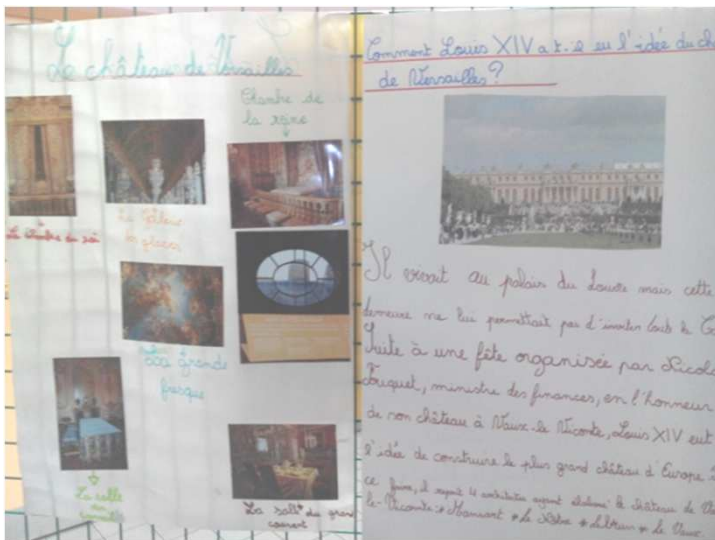 Le château de Versailles
Chambre de
la reine
La chambre du roi
La Galerie
des glaces
La grande
fresque
La salle
du
conseil
La salle du grand
couvert
Comment Louis XIV a t-il eu l'idée du ch
de Versailles?
Il vivait au palais du Louvre mais cette
demeure ne lui permettait pas d'inviter toute la C
Suite à une fête organisée par Nicola
Fouquet, ministre des finances, en l'honneur
de son château à Vaux-le Viconte, Louis XIV eut
l'idée de construire le plus grand château d'Europe.
ce faire, il reprit 4 architectes ayant élaboré le château de V
le-Vicomte: * Mansart * Le Nôtre * Lebrun * Le Vaux